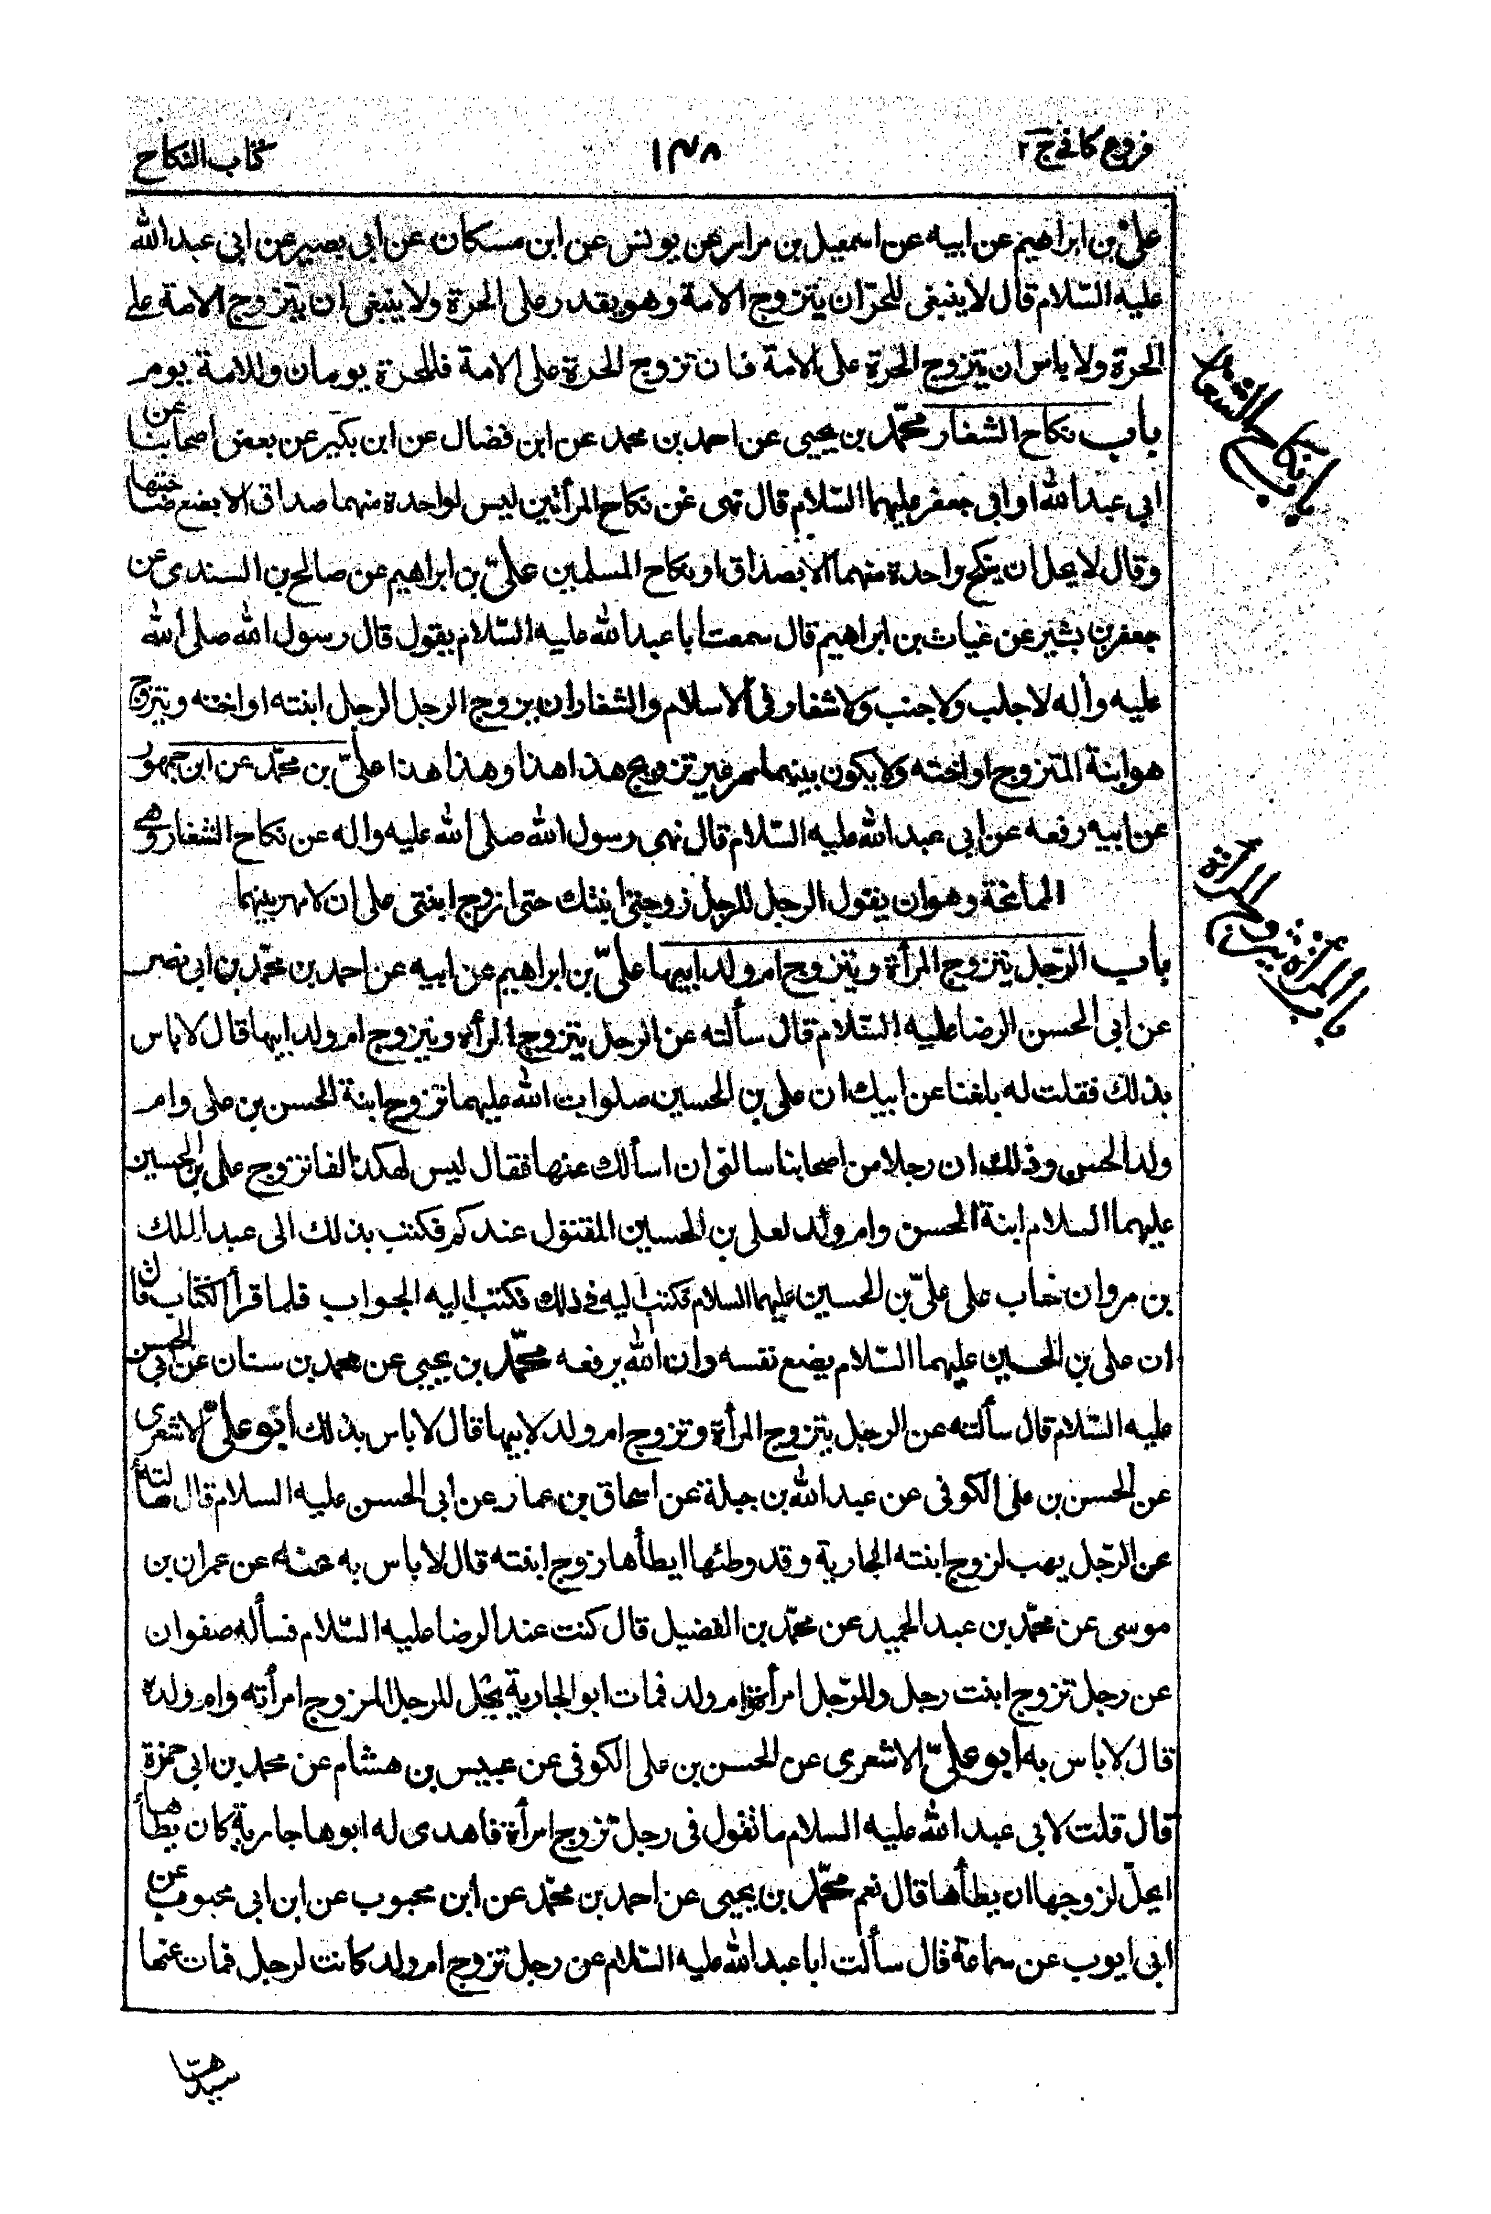 فروع كافى ج ٢
١٣٨
كتاب النكاح
علىّ بن ابراهيم عن ابيه عن اسمعيل بن مرار عن يونس عن ابن مسكان عن ابى بصير عن ابى عبد الله
عليه السّلام قال لا ينبغى للحرّ ان يتزوج الامة وهو يقدر على الحرة ولا ينبغى ان يتزوج الامة على
الحرة ولا باس ان يتزوج الحرة على الامة فان تزوج الحرة على الامة فللحرة يومان وللامة يوم
باب نكاح الشغار محمّد بن يحيى عن احمد بن محمد عن ابن فضال عن ابن بكير عن بعض اصحابنا عن
ابى عبد الله او ابى جعفر عليهما السّلام قال نهى عن نكاح المرأتين ليس لواحدة منهما صداق الا بضع صاحبتها
وقال لا يحل ان ينكح واحدة منهما الا بصداق او نكاح المسلمين علىّ بن ابراهيم عن صالح بن السندى عن
جعفر بن بشير عن غياث بن ابراهيم قال سمعت ابا عبد الله عليه السّلام يقول قال رسول الله صلى الله
عليه وآله لا جلب ولا جنب ولا شغار فى الاسلام والشغار ان يزوج الرجل الرجل ابنته او اخته ويتزوج
هو ابنة المتزوج او اخته ولا يكون بينهما مهر غير تزويج هذا هذا وهذا هذا علىّ بن محمّد عن ابن جمهور
عن ابيه رفعه عن ابى عبد الله عليه السّلام قال نهى رسول الله صلى الله عليه واله عن نكاح الشغار وهى
الممانحة وهو ان يقول الرجل للرجل زوجنى ابنتك حتى ازوج ابنتى على ان لا مهر بينهما
باب الرّجل يتزوج المرأة ويتزوج ام ولد ابيها علىّ بن ابراهيم عن ابيه عن احمد بن محمّد بن ابى نصر
عن ابى الحسن الرضا عليه السّلام قال سألته عن الرجل يتزوج المرأة ويتزوج ام ولد ابيها قال لا باس
بذلك فقلت له بلغنا عن ابيك ان على بن الحسين صلوات الله عليهما تزوج ابنة الحسن بن على وام
ولد الحسن وذلك ان رجلا من اصحابنا سالنى ان اسالك عنها فقال ليس هكذا انما تزوج على بن الحسين
عليهما السلام ابنة الحسن وام ولد لعلى بن الحسين المقتول عندكم فكتب بذلك الى عبد الملك
بن مروان فعاب على علىّ بن الحسين عليهما السلام فكتب اليه فى ذلك فكتب اليه الجواب فلما قرأ الكتاب قال
ان على بن الحسين عليهما السّلام يضع نفسه وان الله يرفعه محمّد بن يحيى عن محمد بن سنان عن ابى الحسن
عليه السّلام قال سألته عن الرجل يتزوج المرأة وتزوج ام ولد لابيها قال لا باس بذلك ابو علىّ الاشعرى
عن الحسن بن على الكوفى عن عبد الله بن جبلة عن اسحاق بن عمار عن ابى الحسن عليه السلام قال سألته
عن الرّجل يهب لزوج ابنته الجارية وقد وطئها ايطأها زوج ابنته قال لا باس به عنه عن عمران بن
موسى عن محمّد بن عبد الحميد عن محمّد بن الفضيل قال كنت عند الرضا عليه السّلام فسأله صفوان
عن رجل تزوج ابنت رجل وللرّجل امرأة وام ولد فمات ابو الجارية يحل للرجل المزوج امرأته وام ولده
قال لا باس به ابو علىّ الاشعرى عن الحسن بن على الكوفى عن عبيس بن هشام عن محمد بن ابى حمزة
قال قلت لابى عبد الله عليه السلام ما تقول فى رجل تزوج امرأة فاهدى له ابوها جارية كان يطأها
ايحلّ لزوجها ان يطأها قال نعم محمّد بن يحيى عن احمد بن محمّد عن ابن محبوب عن ابن ابى محبوب عن
ابى ايوب عن سماعة قال سألت ابا عبد الله عليه السّلام عن رجل تزوج ام ولد كانت لرجل فمات عنها
سيدها
باب نكاح الشغار